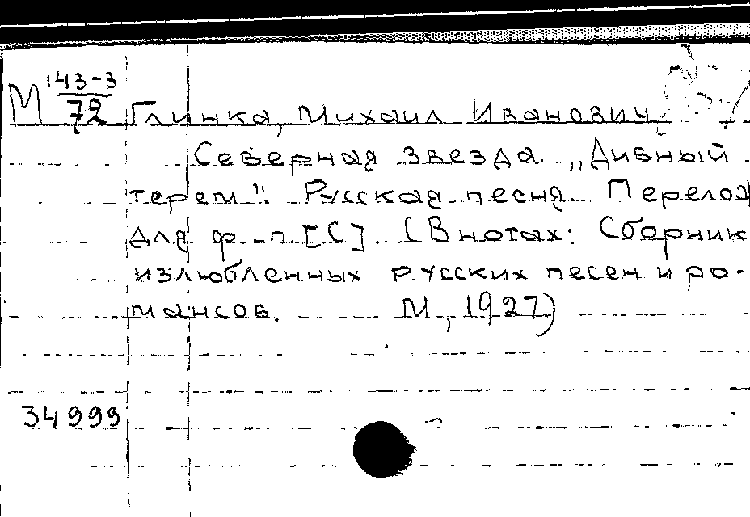 М 143-3
72 Глинка, Михаил Иванович.
Северная звезда. „Дивный
терем". Русская песня. Перелож
для ф.-п [С] (В нотах: Сборник
излюбленных русских песен и ро-
мансов. М, 1927)
34999